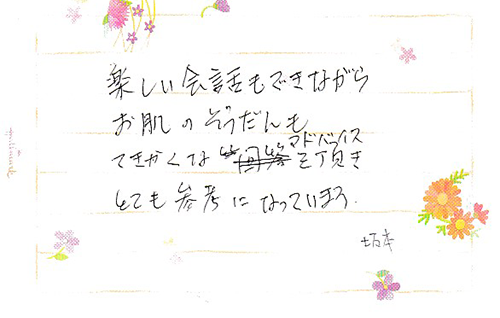 楽しい会話もできながら
お肌のそうだんも
てきかくなアドバイスを頂き
とても参考になっています.
坂本